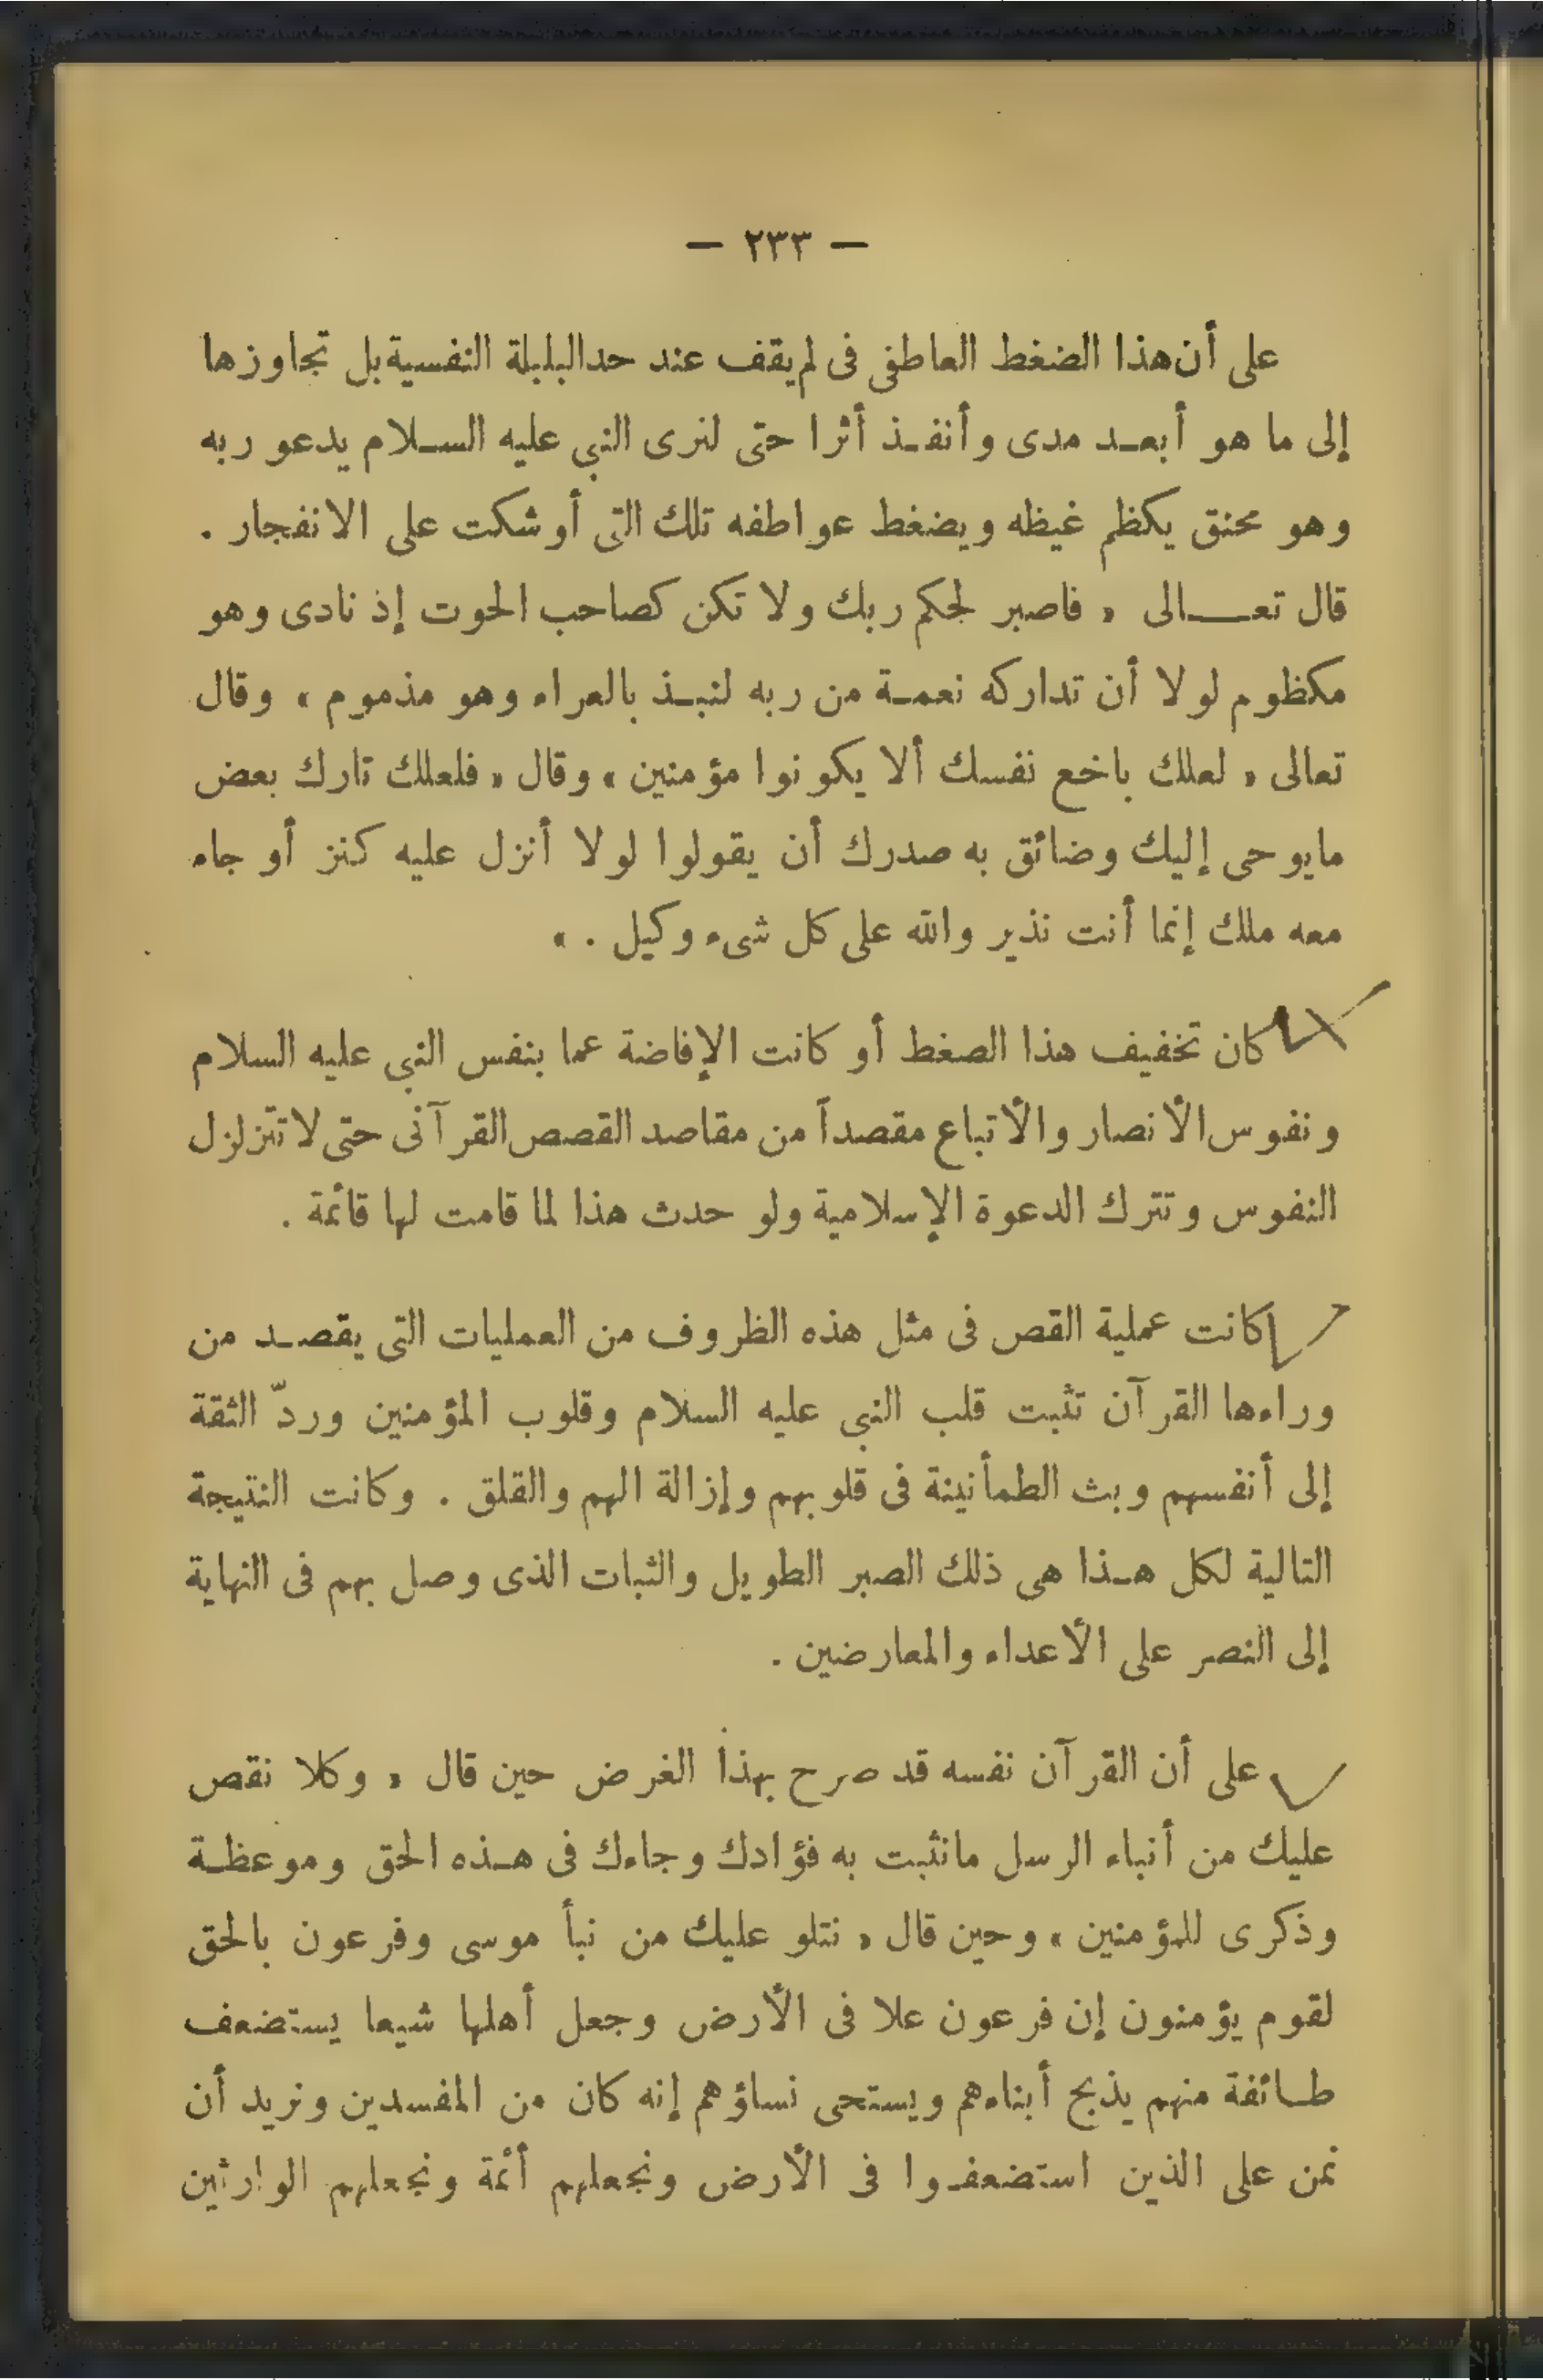 — ٢٣٣ —
على أن هذا الضغط العاطفى فى لم يقف عند حد البلبلة النفسية بل تجاوزها
إلى ما هو أبعد مدى وأنفذ أثرا حتى لنرى النبى عليه السلام يدعو ربه
وهو محنق يكظم غيظه ويضغط عواطفه تلك التى أوشكت على الانفجار .
قال تعالى « فاصبر لحكم ربك ولا تكن كصاحب الحوت إذ نادى وهو
مكظوم لولا أن تداركه نعمة من ربه لنبذ بالعراء وهو مذموم » وقال
تعالى « لعلك باخع نفسك ألا يكونوا مؤمنين » وقال « فلعلك تارك بعض
مايوحى إليك وضائق به صدرك أن يقولوا لولا أنزل عليه كنز أو جاء
معه ملك إنما أنت نذير والله على كل شىء وكيل . »
كان تخفيف هذا الضغط أو كانت الإفاضة عما بنفس النبى عليه السلام
ونفوس الأنصار والأتباع مقصداً من مقاصد القصص القرآنى حتى لا تتزلزل
النفوس وتترك الدعوة الإسلامية ولو حدث هذا لما قامت لها قائمة .
كانت عملية القص فى مثل هذه الظروف من العمليات التى يقصد من
وراءها القرآن تثبت قلب النبى عليه السلام وقلوب المؤمنين وردّ الثقة
إلى أنفسهم وبث الطمأنينة فى قلوبهم وإزالة الهم والقلق . وكانت النتيجة
التالية لكل هذا هى ذلك الصبر الطويل والثبات الذى وصل بهم فى النهاية
إلى النصر على الأعداء والمعارضين .
على أن القرآن نفسه قد صرح بهذا الغرض حين قال « وكلا نقص
عليك من أنباء الرسل مانثبت به فؤادك وجاءك فى هذه الحق وموعظة
وذكرى للمؤمنين » وحين قال « نتلو عليك من نبأ موسى وفرعون بالحق
لقوم يؤمنون إن فرعون علا فى الأرض وجعل أهلها شيعا يستضعف
طائفة منهم يذبح أبناءهم ويستحى نساؤهم إنه كان من المفسدين ونريد أن
نمن على الذين استضعفوا فى الأرض ونجعلهم أئمة ونجعلهم الوارثين